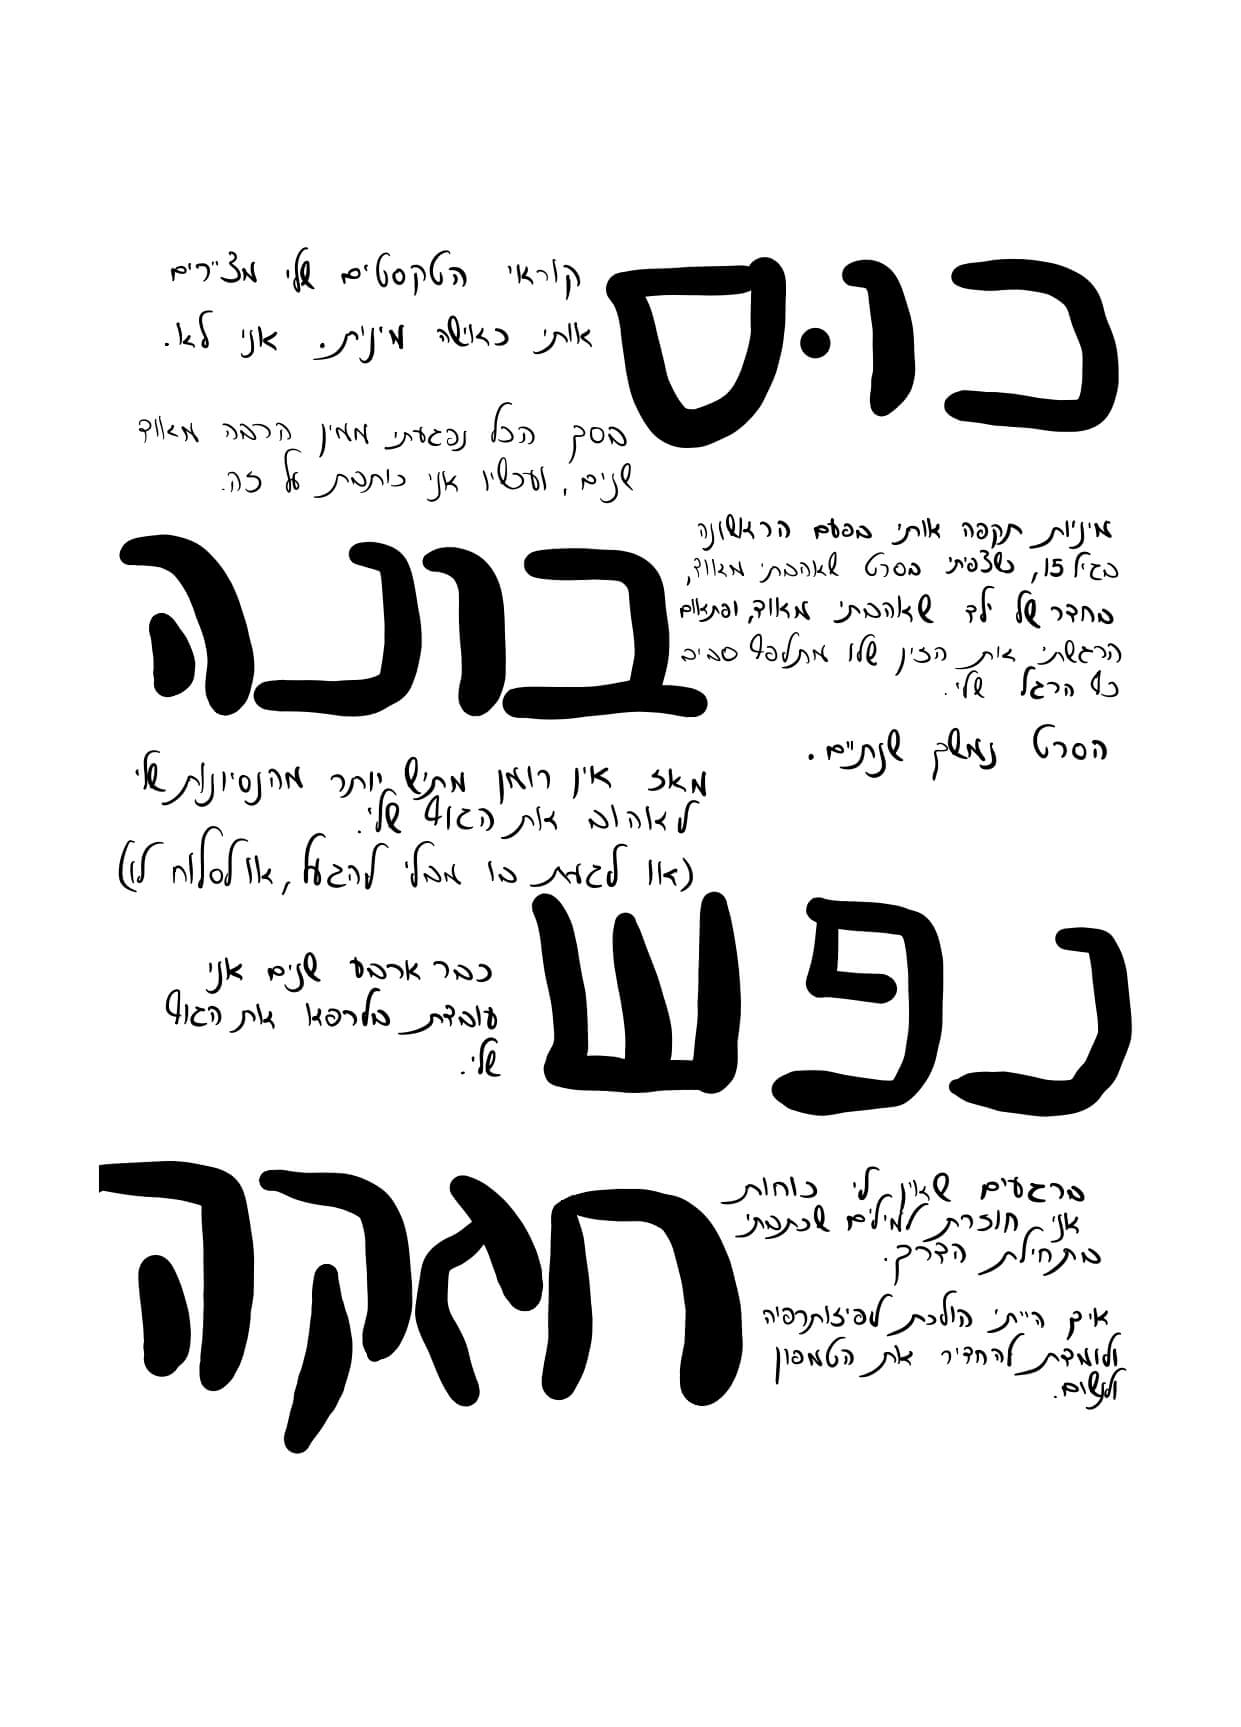 כוּס
קוראי הטקסטים שלי מציירים
אותי כאישה מינית. אני לא.
בסך הכל נפגעתי ממין הרבה מאוד
שנים, ועכשיו אני כותבת על זה.
בונה
מיניות תקפה אותי בפעם הראשונה
בגיל 15, כשצפיתי בסרט שאהבתי מאוד,
בחדר של ילד שאהבתי מאוד, ופתאום
הרגשתי את הזין שלו מתלפף סביב
כף הרגל שלי.
הסרט נמשך שנתיים.
מאז אין רומן מתיש יותר מהנסיונות שלי
לאהוב את הגוף שלי.
(או לגעת בו מבלי להגעל, או לסלוח לו)
נפש
כבר ארבע שנים אני
עובדת בלרפא את הגוף
שלי.
חזקה
ברגעים שאין לי כוחות
אני חוזרת למילים שכתבתי
בתחילת הדרך.
איך הייתי הולכת לפיזותרפיה
ולומדת להחדיר את הטמפון
ולנשום.